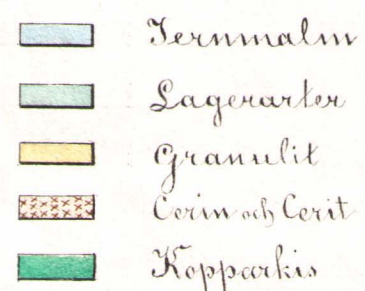 Jernmalm
Lagerarter
Granulit
Cerin och Cerit
Kopparkis